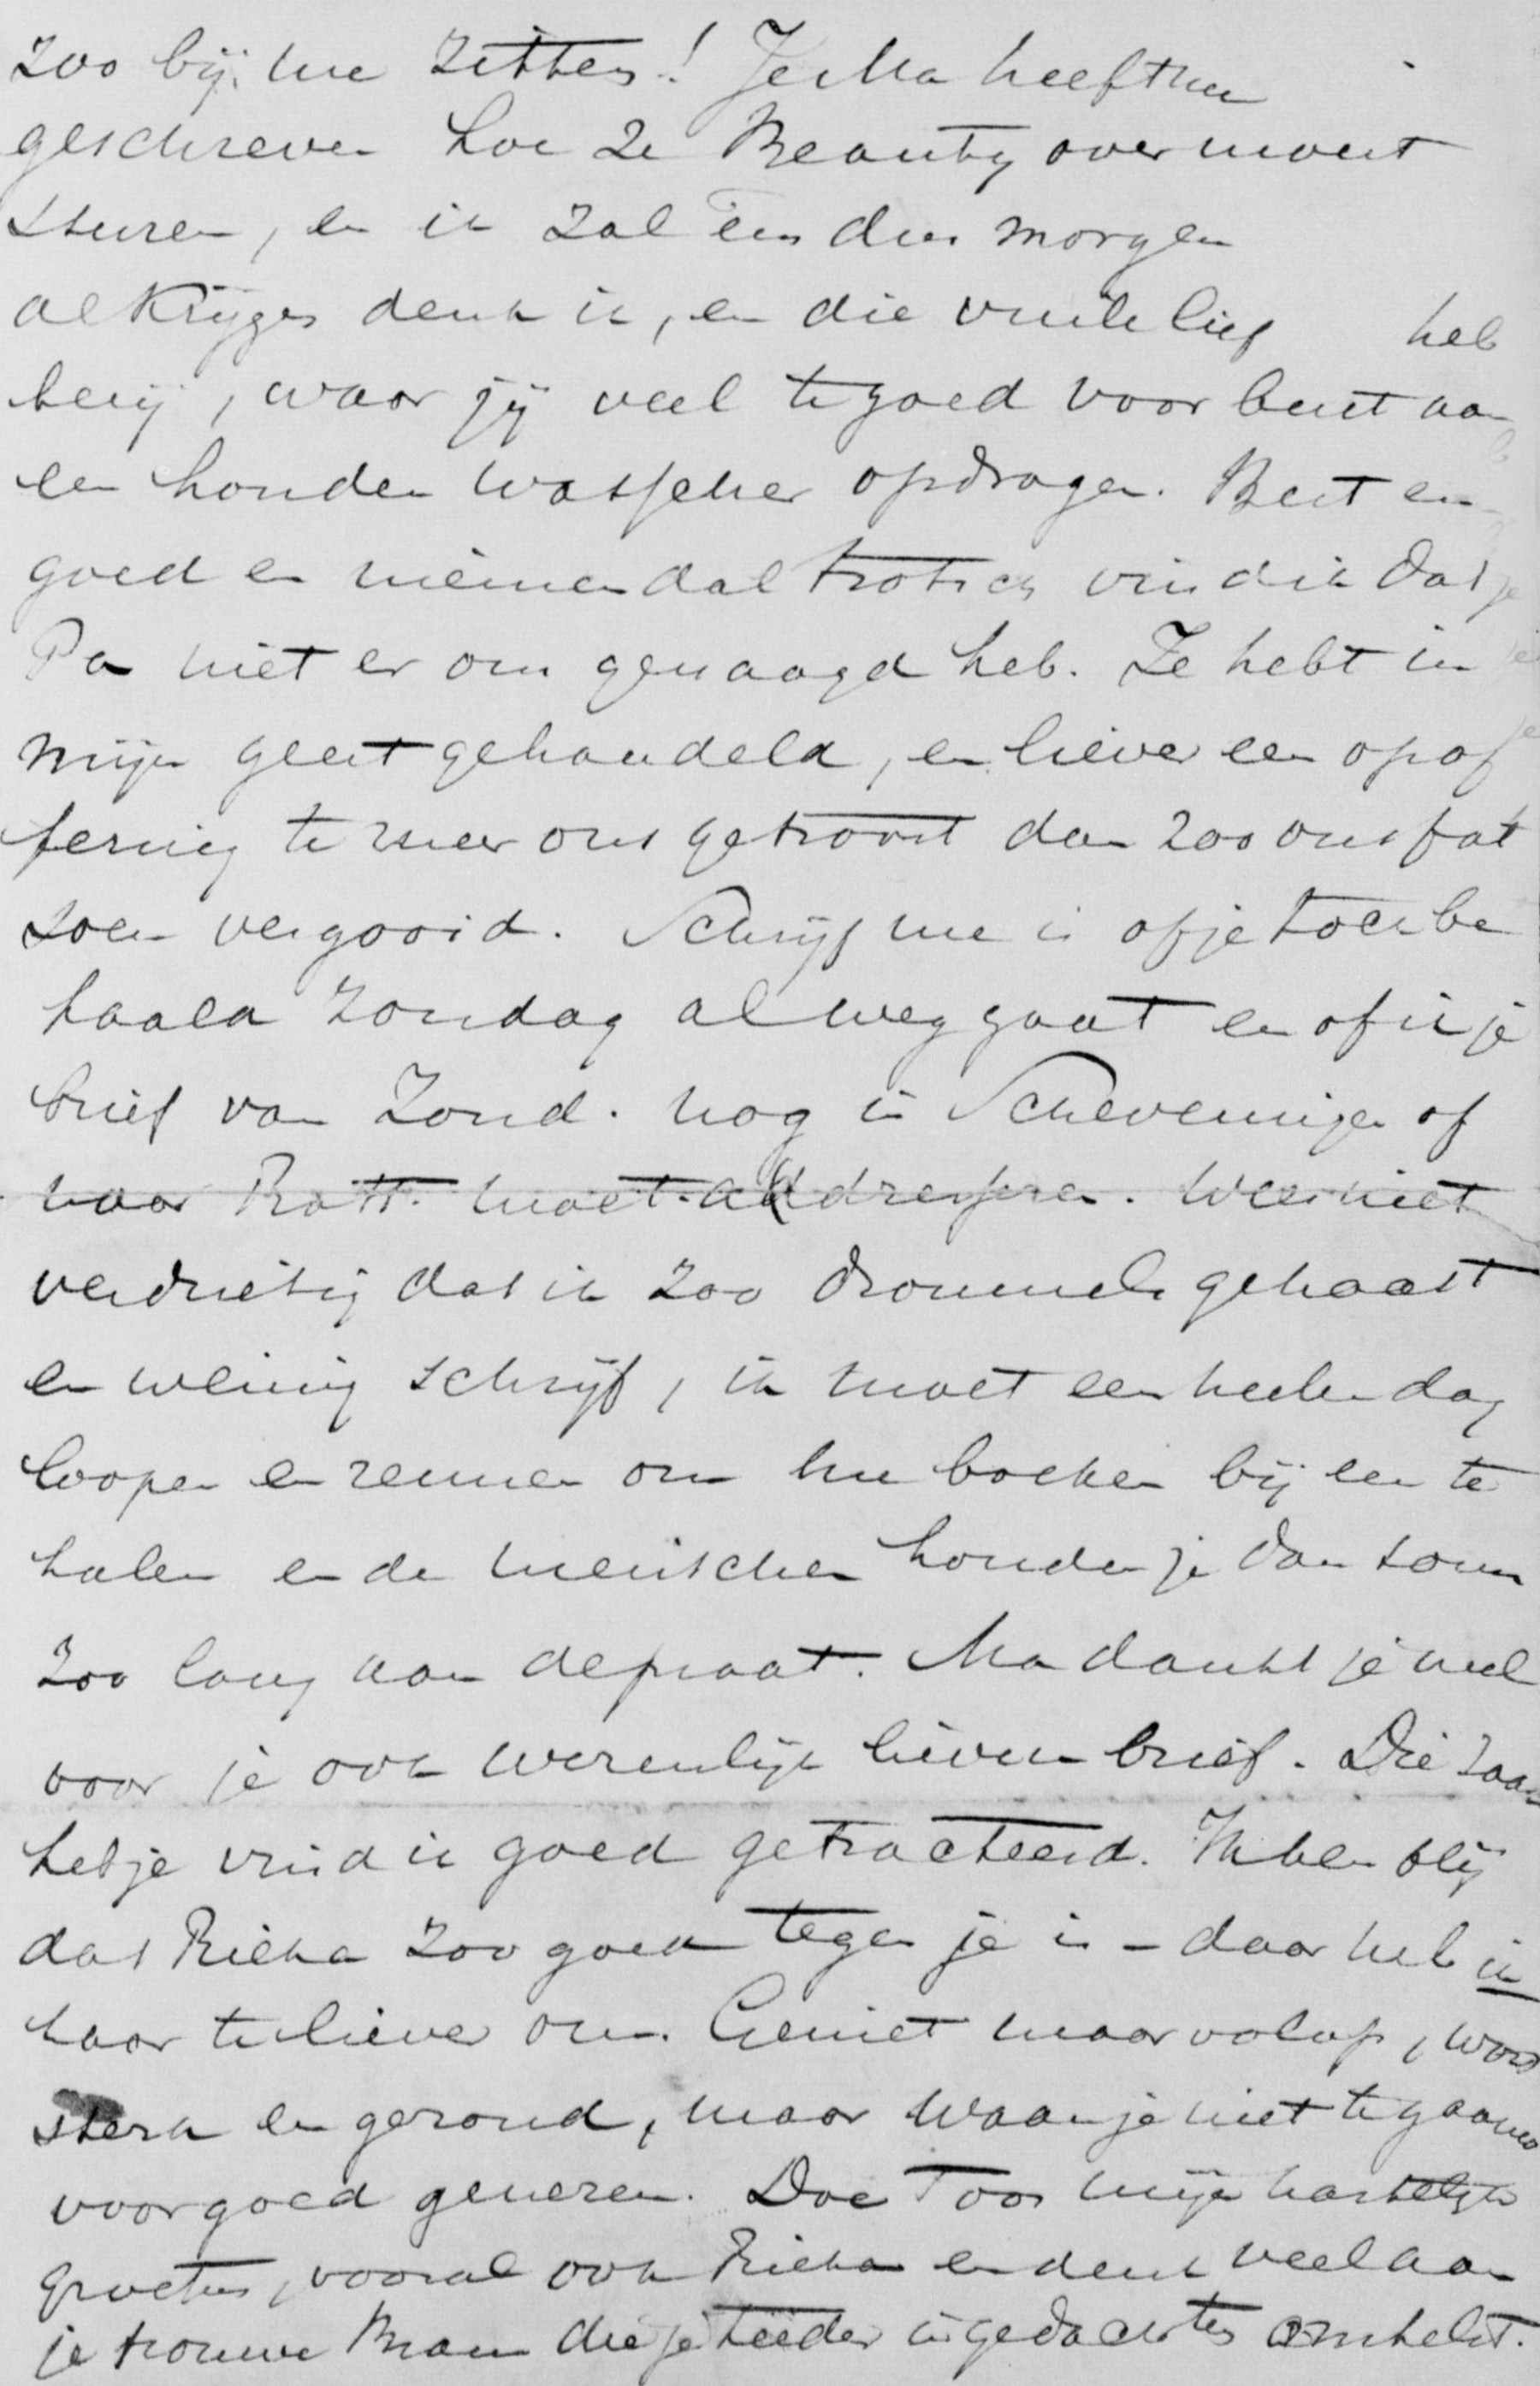 zoo bij me zitten! Je Ma heeft me
geschreven hoe ze Beauty over moest
sturen, en ik zal een dus morgen
al krijgen denk ik, en die vuile lief heb
berij, waar jij veel te goed voor bent aan
een honden wasscher opdragen. Best en
goed en niemendal trotsch vind ik dat je
Pa niet er om gevraagd heb. Je hebt in
mijn geest gehandeld, en liever een opof
fering te meer ons getroost dan zoo ons fat
zoen vergooid. Schrijf me is of je toch be
haald Zondag al weg gaat en of ik je
brief van Zond. nog in Scheveningen of
naar Rott. moet addresseren. Wees niet
verdrietig dat ik zoo drommels gehaast
en weinig schrijf, ik moet een heelen dag
loopen en rennen om me boeken bij een te
halen en de menschen houden je dan soms
zoo lang aan de praat. Ma dankt je veel
voor je ook werkenlijk lieven brief. Die zaak
heb je vind ik goed getracteerd. Ik ben blij
dat Rieka zoo goed tegen je is – daar heb ik
haar te liever om. Geniet maar volop, word
sterk en gezond, maar waar je niet te gaauw
voor goed genezen. Doe Toos mijn hartelijke
groeten, vooral ook Rieka en denk veel aan
je trouwe Bram die je teeder in gedachten omhelst.